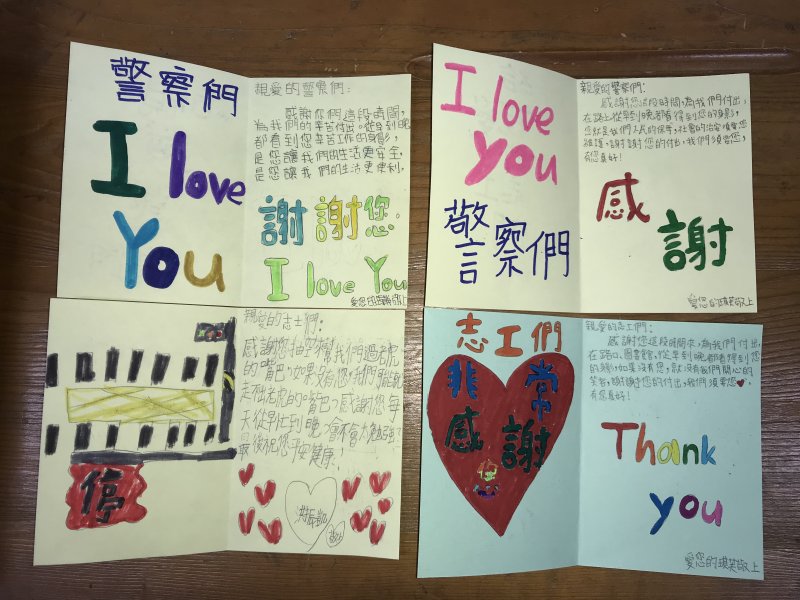 警察們
I love
You
親愛的警察們:
感謝你們這段時間,
為我們的辛苦付出。從早到晚
都看到您辛苦工作的身影,
是您讓我們的生活更安全,
是您讓我們的生活更便利,
謝謝您。
I love You
敬上
I love
you
警察們
親愛的警察們:
感謝您這段時間,為我們付出,
在路上從早到晚都看得到您的身影,
您就是我們人民的保母,社會的治安
維護。謝謝您的付出,我們須要您,
有您真好!
感
謝
愛您的瑛英敬上
停
親愛的志工們:
感謝您抽空幫我們過老虎
的嘴巴,如果沒有您,我們
走在老虎的嘴巴,感謝您每
天從早忙到晚,會不會太勉強?
最後祝您平安健康!
敬上
志工們
非常
感謝
親愛的志工們:
感謝您這段時間來,為我們付出,
在路口、圖書館,從早到晚都看得到您
的,如果沒有您,就沒有我們開心的
笑容,謝謝您的付出,我們須要您
有您真好!
Thank
you
愛您的瑛英敬上